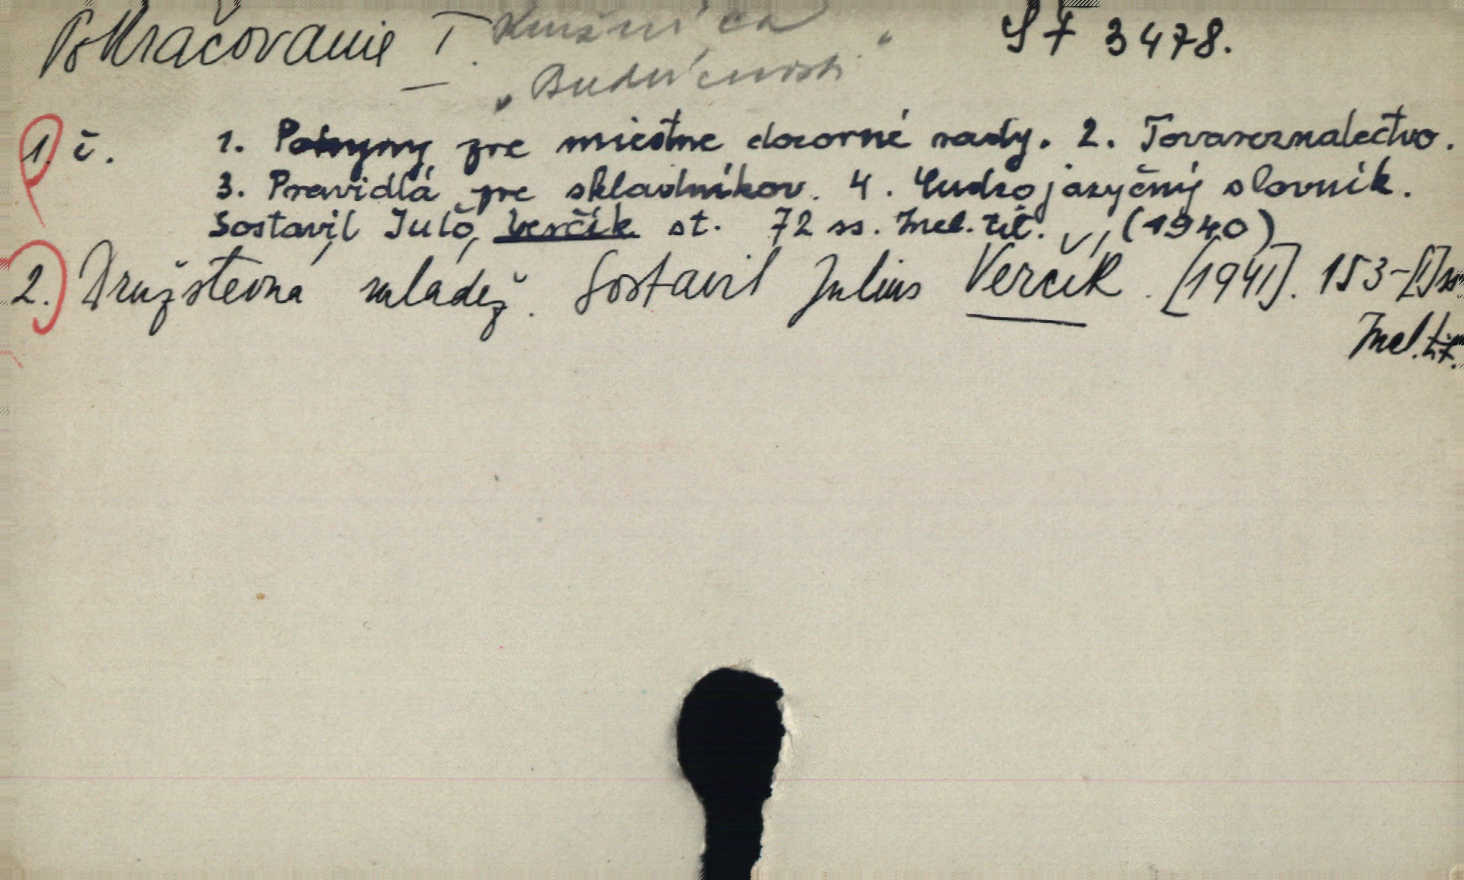 Pokračovanie I. Knižnica SF 3478.
„Budúcnosti"
1. č. 1. Pokyny pre miestne dozorné rady. 2. Tovaroznalectvo.
3. Pravidlá pre skladníkov. 4. Cudzojazyčný slovník.
Sostavil Julo Verčík st. 72 ss. Mel. tit. (1940)
2. Družstevná mládež. Sostavil Julius Verčík. [1941]. 153-[I] ss.
Mel. tit.